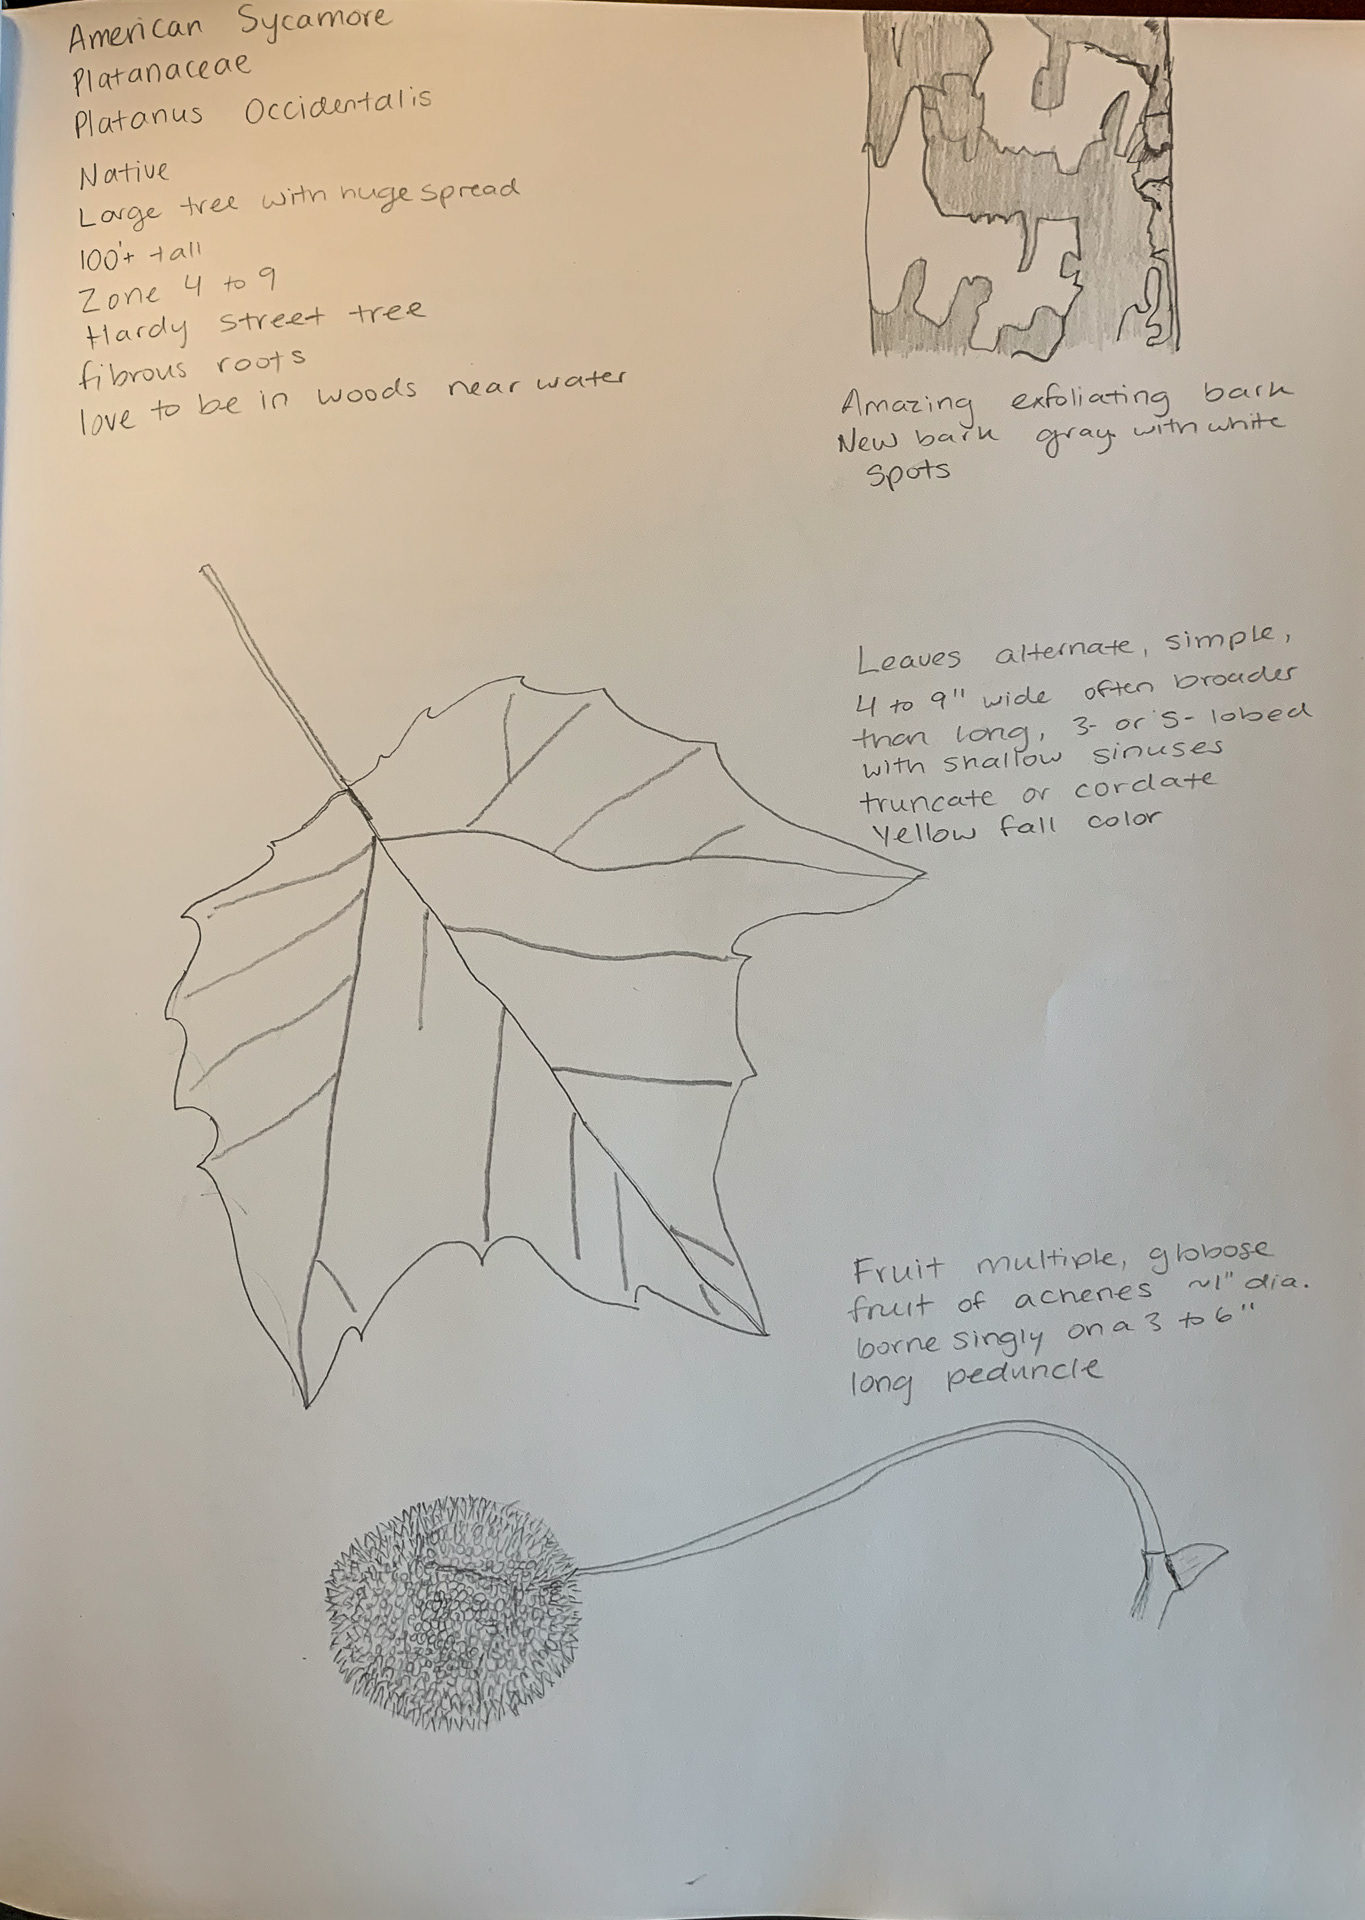 American Sycamore
Platanaceae
Platanus Occidentalis
Native
Large tree with huge spread
100'+ tall
Zone 4 to 9
Hardy street tree
fibrous roots
love to be in woods near water
Amazing exfoliating bark
New bark gray with white
spots
Leaves alternate, simple,
4 to 9" wide often broader
than long, 3- or 5- lobed
with shallow sinuses
truncate or cordate
Yellow fall color
Fruit multiple, globose
fruit of achenes ~1" dia.
borne singly on a 3 to 6"
long peduncle